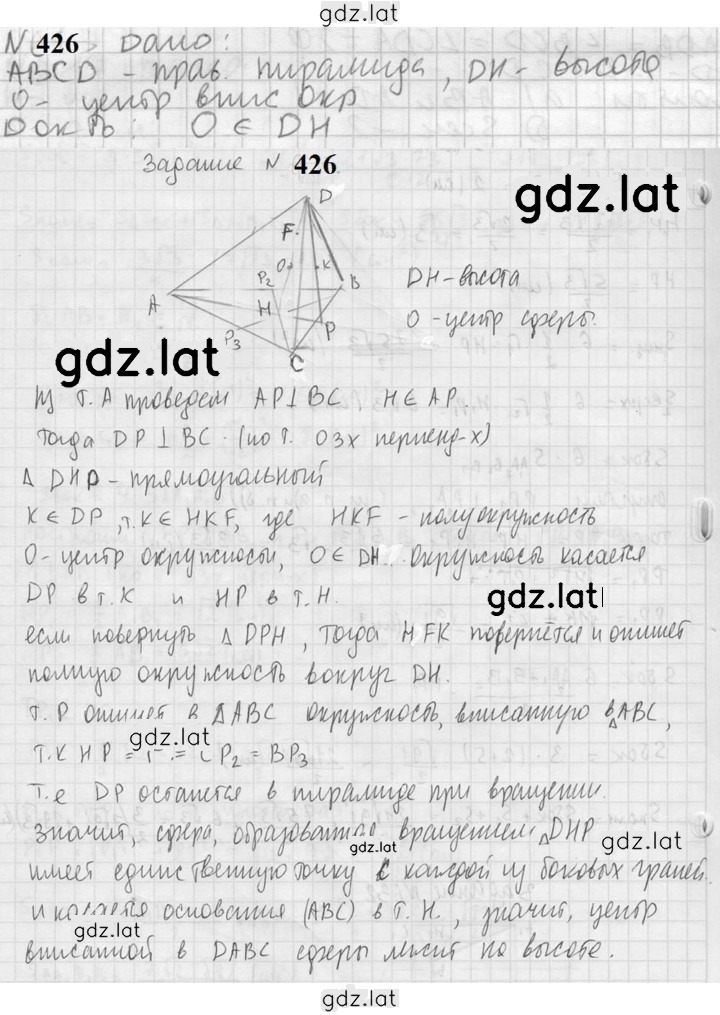 gdz.lat
N 426 Дано:
ABCD - прав. пирамида, DH - высота
O - центр впис окр
Док-ть: O ∈ DH
Задание N 426
gdz.lat
D
F
O K
P₂ B
A H
P
P₃
C
DH - высота
O - центр сферы.
gdz.lat
Из т. A проведем AP ⊥ BC, H ∈ AP
Тогда DP ⊥ BC (по т. о 3х перпенд-х)
Δ DHP - прямоугольный
K ∈ DP, т. K ∈ HKF, где HKF - полуокружность
O - центр окружности, O ∈ DH. Окружность касается
DP в т. K и HP в т. H.
gdz.lat
если повернуть Δ DPH, тогда HFK повернётся и опишет
полную окружность вокруг DH.
т. P опишет в ΔABC окружность, вписанную в ΔABC,
gdz.lat
т.к HP = = P₂ = BP₃
т.е DP останется в пирамиде при вращении.
значит, сфера, образованная вращением ΔDHP
имеет единственную точку с каждой из боковых граней.
и касается основания (ABC) в т. H., значит, центр
gdz.lat
вписанной в DABC сферы лежит на высоте.
gdz.lat